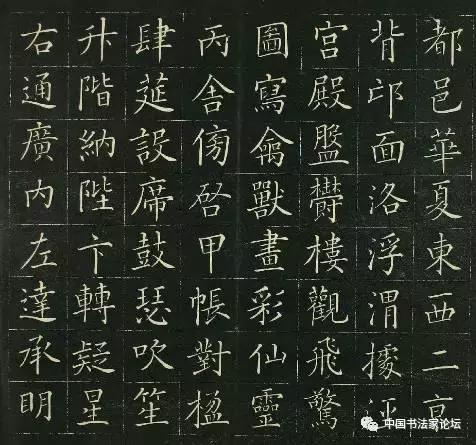 都邑華夏東西二京
背邙面洛浮渭據涇
宫殿盤欝樓觀飛驚
圖寫禽獸畫彩仙靈
丙舎傍启甲帳對楹
肆筵設席鼓瑟吹笙
升階納陛卞轉疑星
右通廣内左達承眀
中国书法家论坛